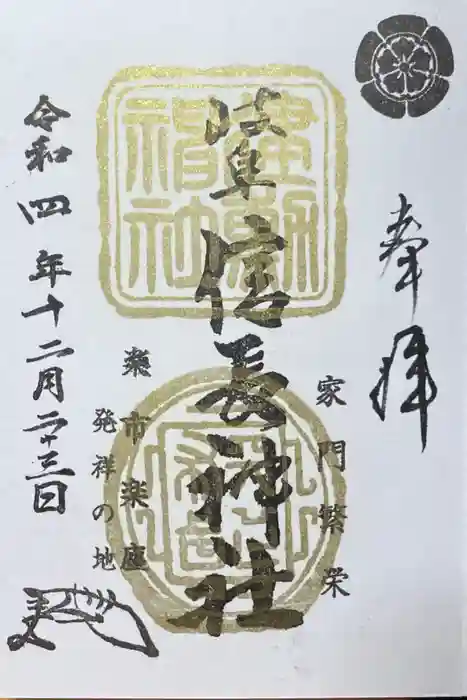 奉拝
家門繁栄
岐阜信長神社
楽市楽座
発祥の地
令和四年十二月二十三日
建勲
神社